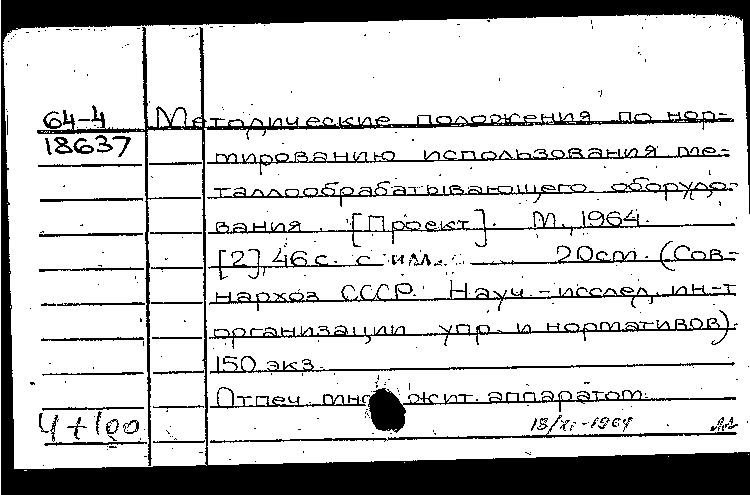 64-4
18637
Методические положения по нор-
мированию использования ме-
таллообрабатывающего оборудо-
вания. [Проект]. М., 1964.
[2], 46 с. с илл. 20 см. (Сов-
нархоз СССР. Науч.-исслед. ин-т
организации упр. и нормативов).
150 экз.
Отпеч. множит. аппаратом.
4+100
13/XI-1964